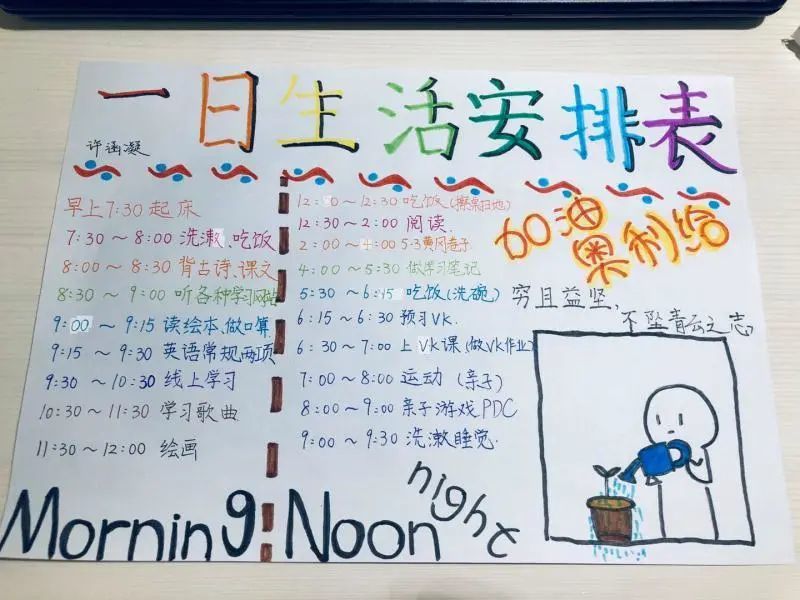 一日生活安排表
许函凝
早上7:30起床
7:30～8:00 洗漱、吃饭
8:00～8:30 背古诗、课文
8:30～9:00 听各种学习网站
9:00～9:15 读绘本、做口算
9:15～9:30 英语常规两项
9:30～10:30 线上学习
10:30～11:30 学习歌曲
11:30～12:00 绘画
Morning
12:00～12:30 吃饭(擦桌扫地)
12:30～2:00 阅读.
2:00～4:00 5·3黄冈卷子
4:00～5:30 做学习笔记
5:30～6:15 吃饭(洗碗)
6:15～6:30 预习VK.
6:30～7:00 上VK课(做VK作业)
7:00～8:00 运动(亲子)
8:00～9:00 亲子游戏PDC
9:00～9:30 洗漱睡觉.
Noon
night
加油
奥利给
穷且益坚,
不坠青云之志